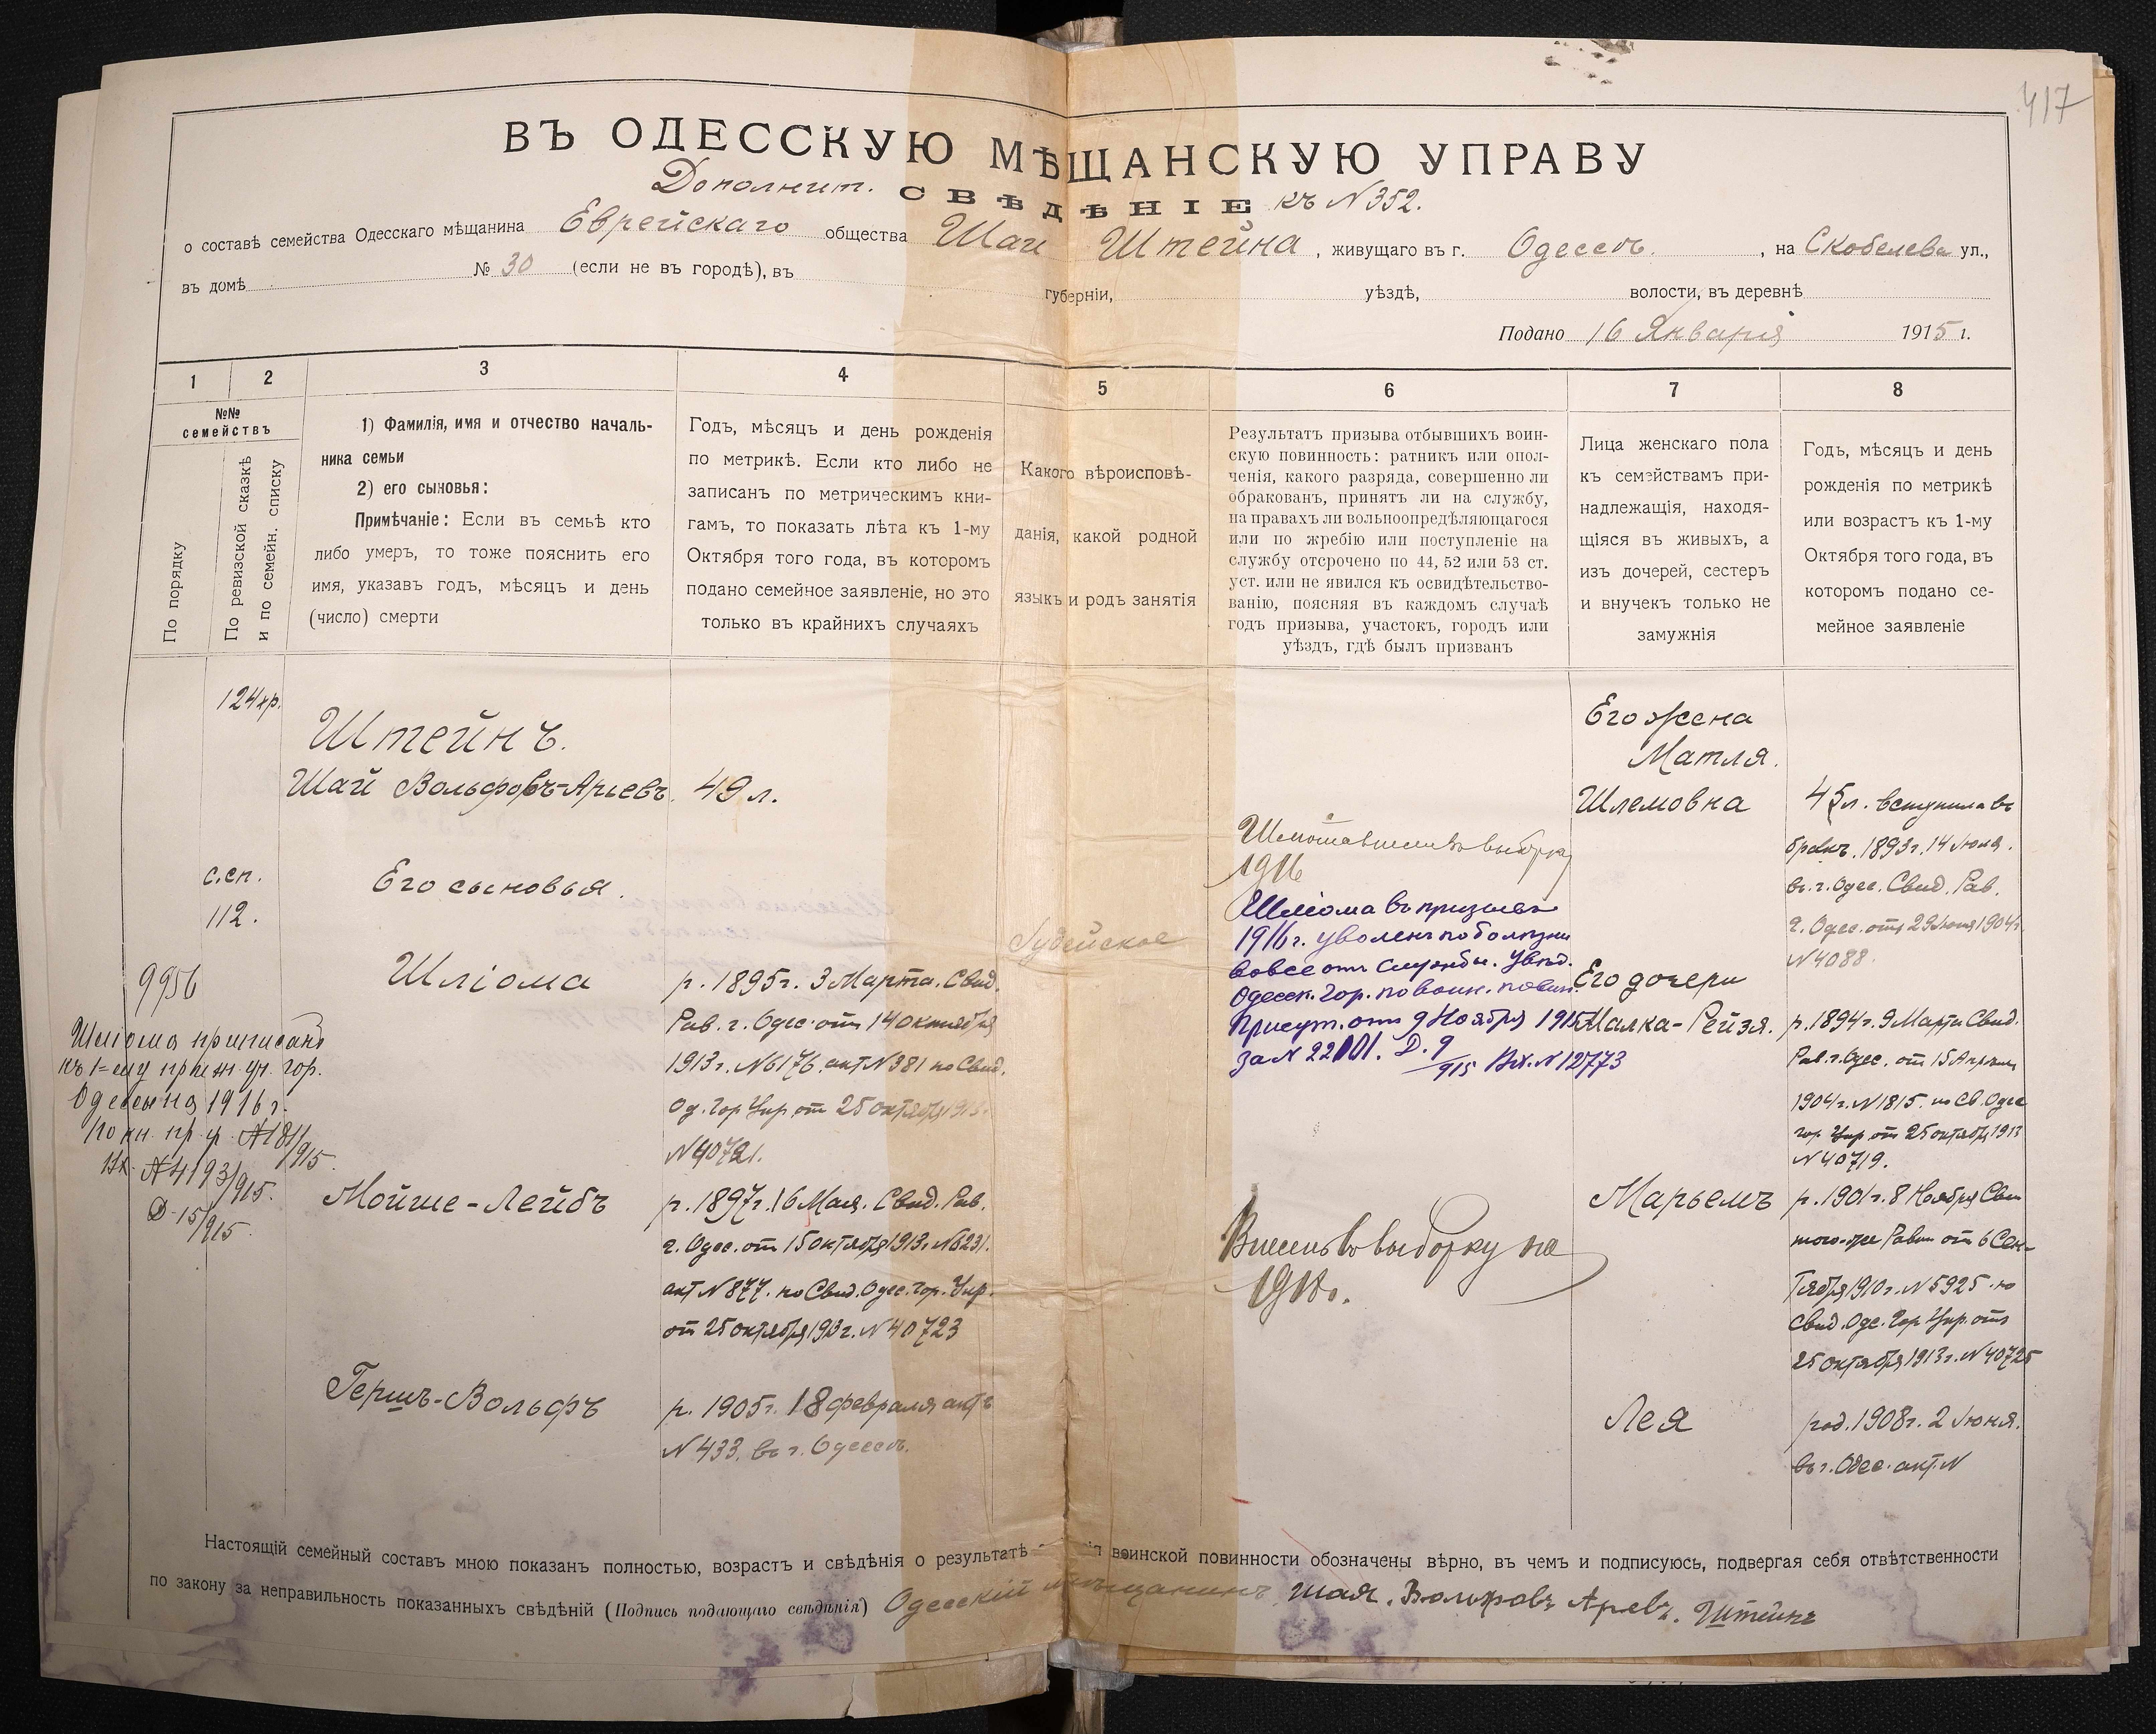 417
ВЪ ОДЕССКУЮ МѢЩАНСКУЮ УПРАВУ
Дополнит. СВѢДѢНІЕ къ N 352.
о составѣ семейства Одесскаго мѣщанина Еврейскаго общества Шаи Штейна, живущаго въ г. Одессѣ, на Скобелева ул.,
въ домѣ № 30 (если не въ городѣ), въ губерніи, уѣздѣ, волости, въ деревнѣ
Подано 16 Января 1915 г.
1 2 3 4 5 6 7 8
№№ семействъ
По порядку
По ревизской сказкѣ
и по семейн. списку
1) Фамилія, имя и отчество началь-
ника семьи
2) его сыновья:
Примѣчаніе: Если въ семьѣ кто
либо умеръ, то тоже пояснить его
имя, указавъ годъ, мѣсяцъ и день
(число) смерти
Годъ, мѣсяцъ и день рожденія
по метрикѣ. Если кто либо не
записанъ по метрическимъ кни-
гамъ, то показать лѣта къ 1-му
Октября того года, въ которомъ
подано семейное заявленіе, но это
только въ крайнихъ случаяхъ
Какого вѣроисповѣ-
данія, какой родной
языкъ и родъ занятія
Результатъ призыва отбывшихъ воин-
скую повинность: ратникъ или опол-
ченія, какого разряда, совершенно ли
обракованъ, принятъ ли на службу,
на правахъ ли вольноопредѣляющагося
или по жребію или поступленіе на
службу отсрочено по 44, 52 или 53 ст.
уст. или не явился къ освидѣтельство-
ванію, поясняя въ каждомъ случаѣ
годъ призыва, участокъ, городъ или
уѣздъ, гдѣ былъ призванъ
Лица женскаго пола
къ семействамъ при-
надлежащія, находя-
щіяся въ живыхъ, а
изъ дочерей, сестеръ
и внучекъ только не
замужнія
Годъ, мѣсяцъ и день
рожденія по метрикѣ
или возрастъ къ 1-му
Октября того года, въ
которомъ подано се-
мейное заявленіе
124 хр.
Штейнъ.
Шай Вольфовъ-Арьевъ. 49 л.
с.сп.
112.
Его сыновья.
9956
Шліома приписанъ
къ 1=му приз. уч. гор.
Одессы на 1916 г.
по кн. пр. у. N 181/915
Вх. N 4193/915.
Д-15/915.
Шліома
р. 1895 г. 3 Марта. Свид.
Рав. г. Одес. от 14 октября
1913 г. N 6176. акт N 381 по Свид.
Од. Гор. Упр. от 25 октября 1913.
N 40721.
Мойше-Лейбъ
р. 1897 г. 16 Мая. Свид. Рав.
г. Одес. от 15 октября 1913 г. N 6231.
акт N 877. по Свид. Одес. Гор. Упр.
от 25 октября 1913 г. N 40723
Гершъ-Вольфъ
р. 1905 г. 18 февраля актъ
N 433. въ г. Одессѣ.
Іудейское
выборку
1916
Шліома въ призывѣ
1916 г. уволенъ по болѣзни
вовсе отъ службы. Увѣд.
Одесск. Гор. по воин. повин.
Присут. отъ 9 Ноября 1915
за N 22101. Д. 9/915 Вх. N 12773
Внесенъ во выборку на
1918 г.
Его жена
Матля.
Шлемовна
45 л. вступила въ
бракъ. 1893 г. 14 Июня.
въ г. Одес. Свид. Рав.
г. Одес. отъ 29 Июня 1904 г.
N 4088.
Его дочери
Малка-Рейзя.
р. 1894 г. 9 Марта Свид.
Рав. г. Одес. от 15 Апрѣля
1904 г. N 1815. по Св. Одес
гор. Упр. от 25 октября 1913
N 40719.
Марьемъ
р. 1901 г. 8 Ноября Свид
того-же Равин от 6 Сен-
тября 1910 г. N 5925. по
Свид. Одес. Гор. Упр. отъ
25 октября 1913 г. N 40725
Лея
род. 1908 г. 2 Июня.
въ г. Одес. акт. N
Настоящій семейный составъ мною показанъ полностью, возрастъ и свѣдѣнія о результатѣ воинской повинности обозначены вѣрно, въ чемъ и подписуюсь, подвергая себя отвѣтственности
по закону за неправильность показанныхъ свѣдѣній (Подпись подающаго свѣдѣнія) Одесскій мѣщанинъ Шая. Вольфовъ Арьевъ. Штейнъ